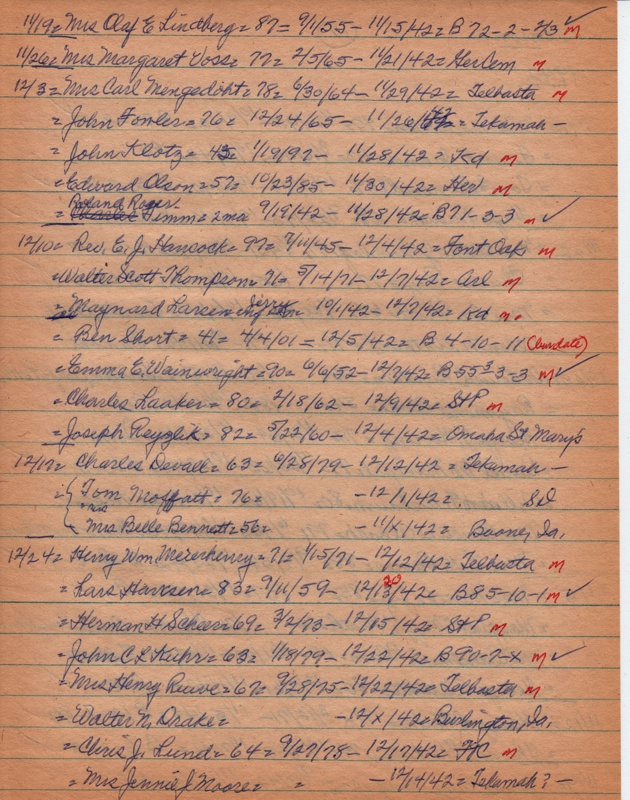 11/19= Mrs Olaf E Lindberg = 87= 9/1/55 - 11/15/42= B 72-2-2/3 ✓ m
11/26= Mrs Margaret Voss= 77= 2/5/65 - 11/21/42= Her Cem m
12/3= Mrs Carl Mengedoht= 78= 6/30/64 - 11/29/42= Telbasta m
= John Fowler= 76= 12/24/65 - 11/26/42= Tekamah -
= John Klotz= 45= 1/19/97 - 11/28/42= Kd m
= Edward Olson= 57= 10/23/85 - 11/30/42= Her m
Roland Roger
= Charles Timm= 2 mo 9/19/42 - 11/28/42= B 71-3-3 m ✓
12/10= Rev. E. J. Hancock= 97= 7/11/45 - 12/4/42= Font Oak m
= Walter Scott Thompson= 71= 5/14/71 - 12/7/42= Arl m
= Maynard Larsen Jerry 10/1/42 - 12/7/42= Kd m
= Ben Short= 41= 4/4/01= 12/5/42= B 4-10-11 (burdate)
= Emma E. Wainwright= 90= 6/6/52 - 12/7/42= B-55-3-3 m ✓
= Charles Laaker= 80= 2/18/62 - 12/9/42= St P m
= Joseph Reyzlik= 82= 5/22/60 - 12/4/42= Omaha St Mary's
12/17= Charles Devall= 63= 6/28/79 - 12/12/42= Tekamah -
= { Tom Moffatt= 76= - 12/1/42= SD
= Mrs Belle Bennett= 56= - 11/x/42= Boone, Ia.
12/24= Henry Wm Meierhenry= 71= 1/15/71 - 12/12/42= Telbasta m
= Lars Hansen= 83= 9/11/59 - 12/20/42= B 85-10-1 m ✓
= Herman H Scheer= 69= 3/2/73 - 12/15/42= St P m
= John C L Kuhr= 63= 1/18/79 - 12/22/42= B 90-7-x m ✓
= Mrs Henry Ruwe= 67= 9/28/75 - 12/22/42= Telbasta m
= Walter N. Drake= - 12/x/42= Burlington, Ia.
= Chris J. Lund= 64= 9/27/78 - 12/17/42= FC m
= Mrs Jennie J Moore= = - 12/14/42= Tekamah? -